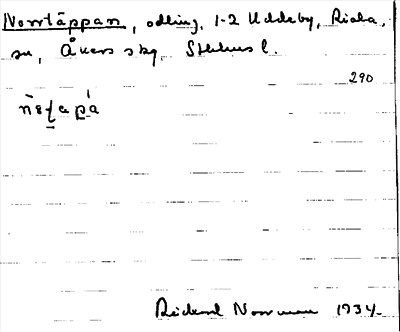 Norrtäppan, odling, 1-2 Uddeby, Riala,
sn, Åkers skg, Sthlms l.
290
Rickard Norrman 1934